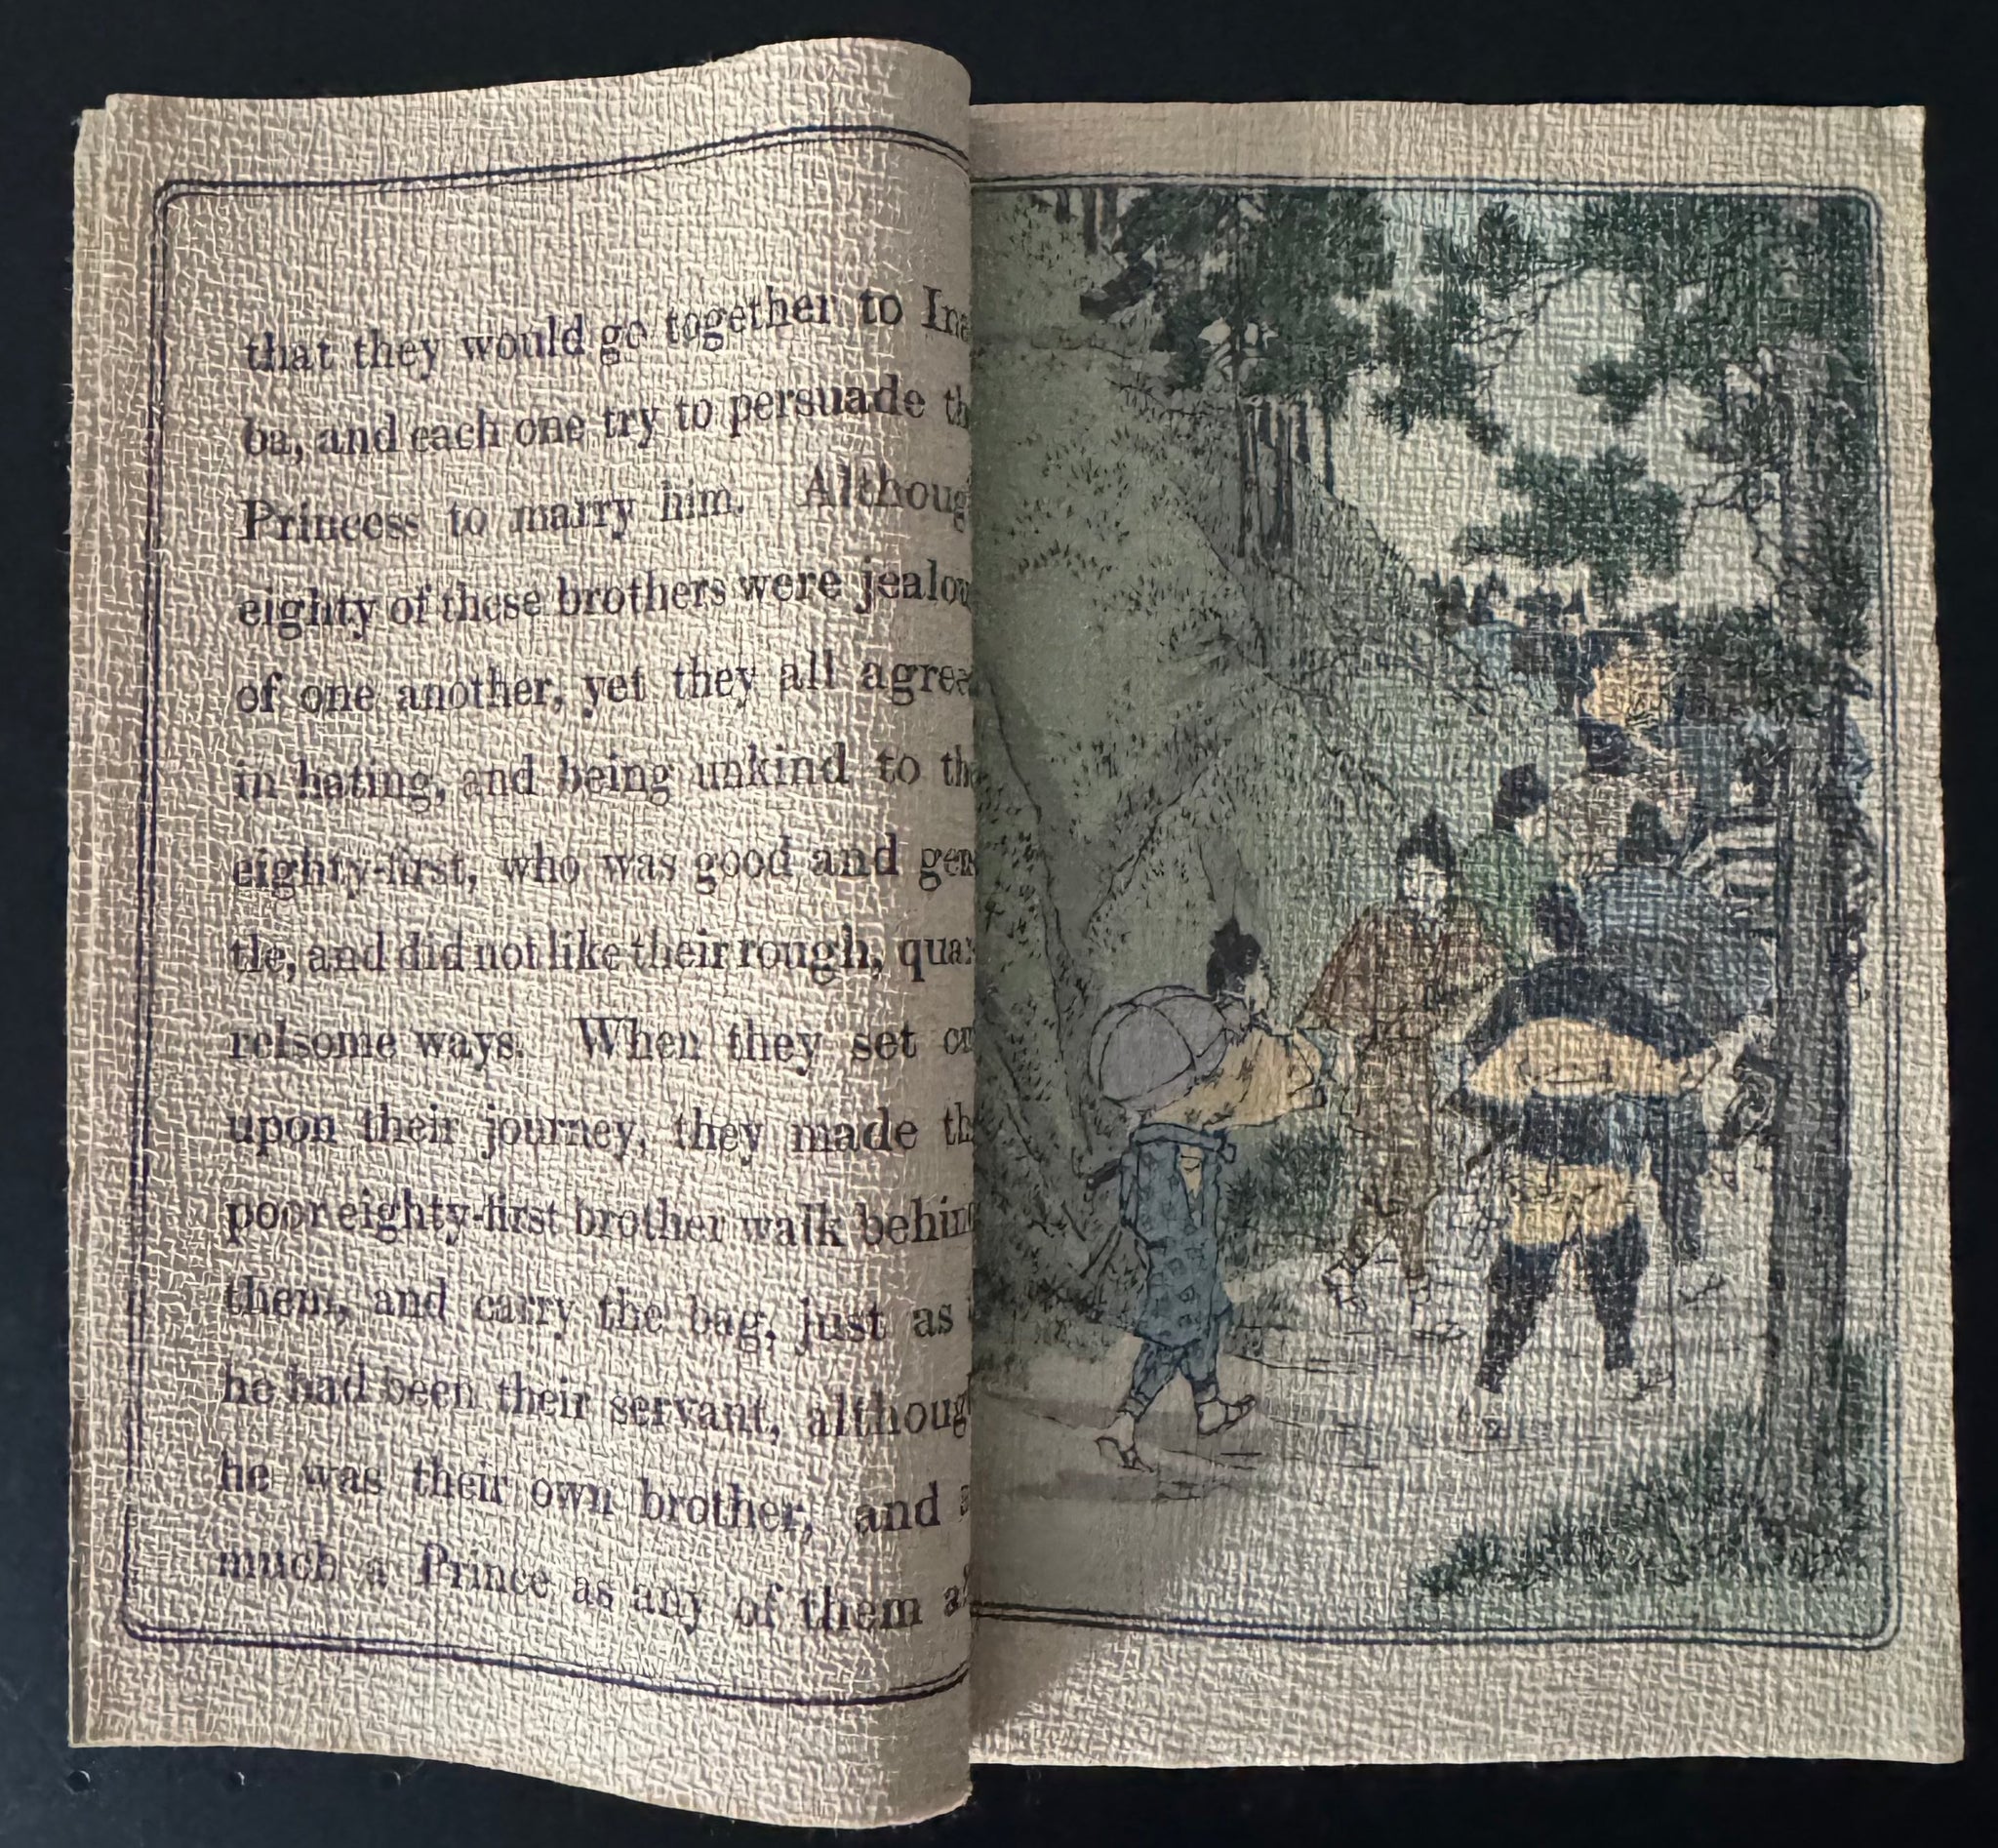 that they would go together to Ina
ba, and each one try to persuade th
Princess to marry him. Althoug
eighty of these brothers were jealou
of one another, yet they all agree
in hating, and being unkind to th
eighty-first, who was good and gen
tle, and did not like their rough, quar
relsome ways. When they set
upon their journey, they made th
poor eighty-first brother walk behin
them, and carry the bag, just as
he had been their servant, althoug
he was their own brother, and
much a Prince as any of them